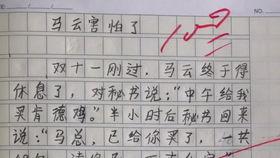 马云害怕了
双十一刚过，马云终于得
休息了，对秘书说："中午给我
买肯德鸡。"半小时后秘书回来
说："马总，已给你买了，一共